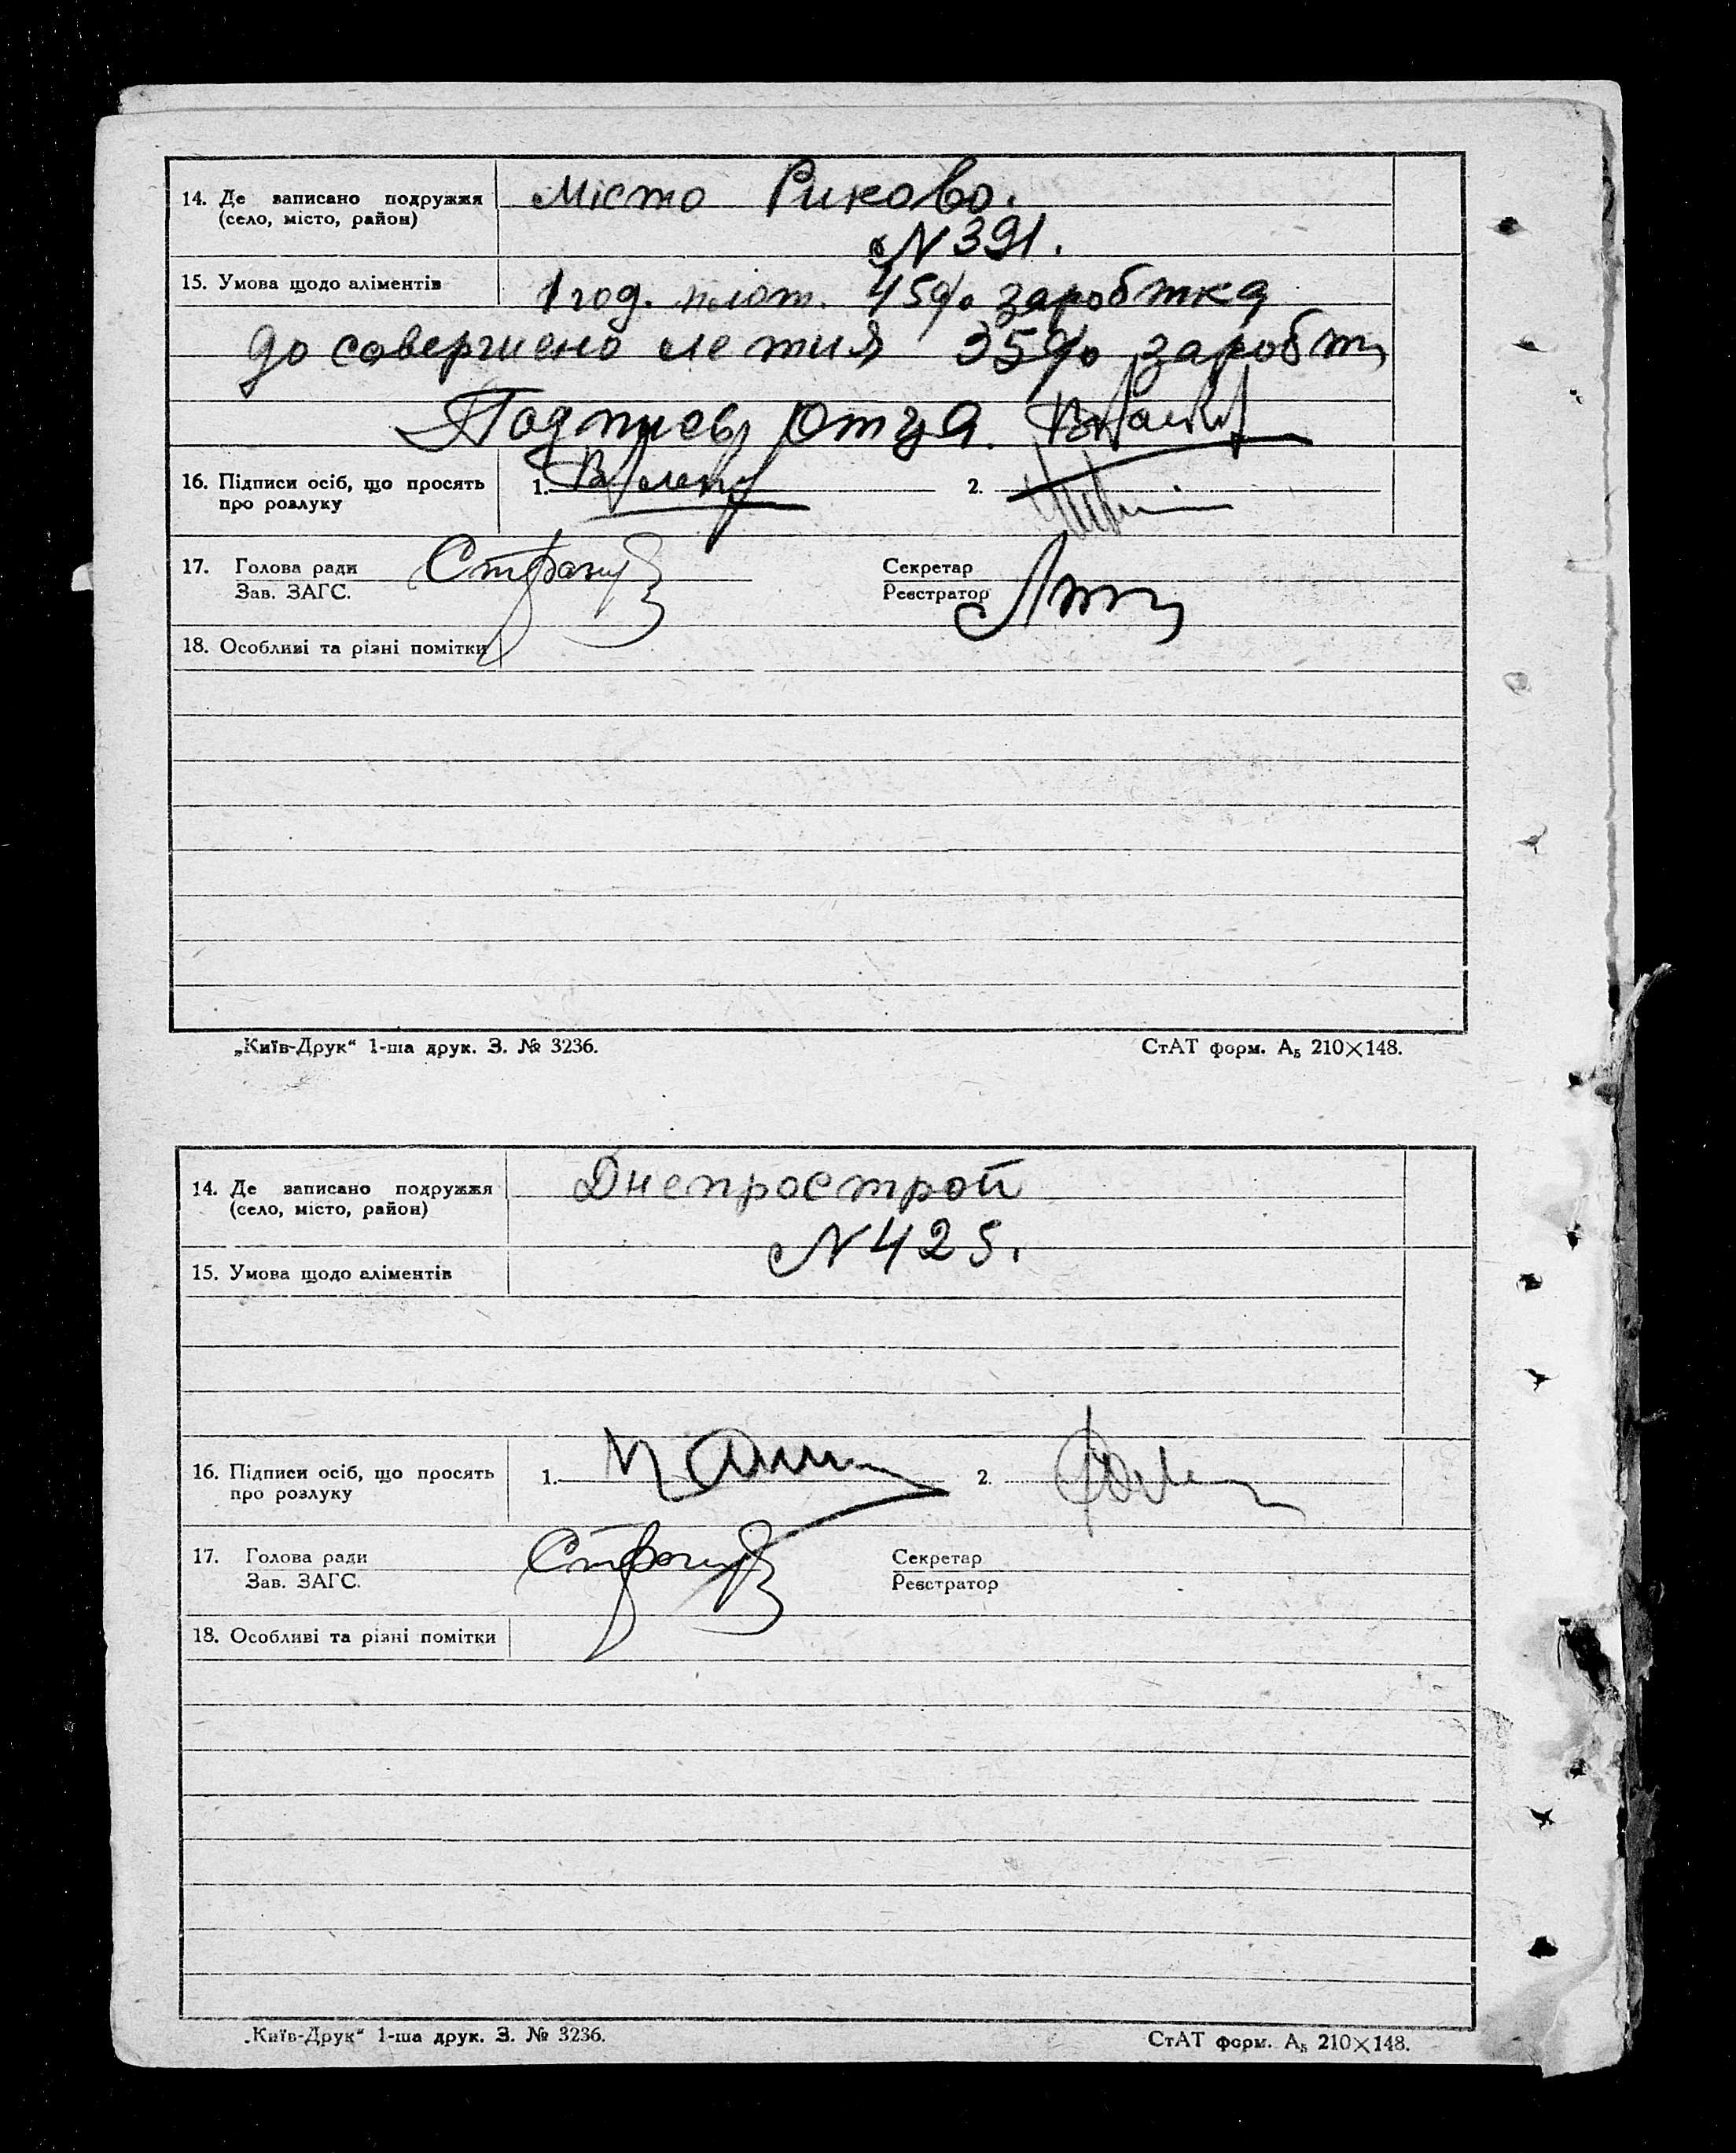 14. Де записано подружжя Місто Риково.
(село, місто, район)
N 391.
15. Умова щодо аліментів 1 год. плат. 45% заробтка
до совершено летия 35% заробт
Подпись отца.
16. Підписи осіб, що просять 1. 2.
про розлуку
17. Голова ради Секретар
Зав. ЗАГС. Реєстратор
18. Особливі та різні помітки
„Київ-Друк" 1-ша друк. З. № 3236. СтАТ форм. А₅ 210×148.
14. Де записано подружжя Днепрострой
(село, місто, район)
N 425.
15. Умова щодо аліментів
16. Підписи осіб, що просять 1. 2.
про розлуку
17. Голова ради Секретар
Зав. ЗАГС. Реєстратор
18. Особливі та різні помітки
„Київ-Друк" 1-ша друк. З. № 3236. СтАТ форм. А₅ 210×148.